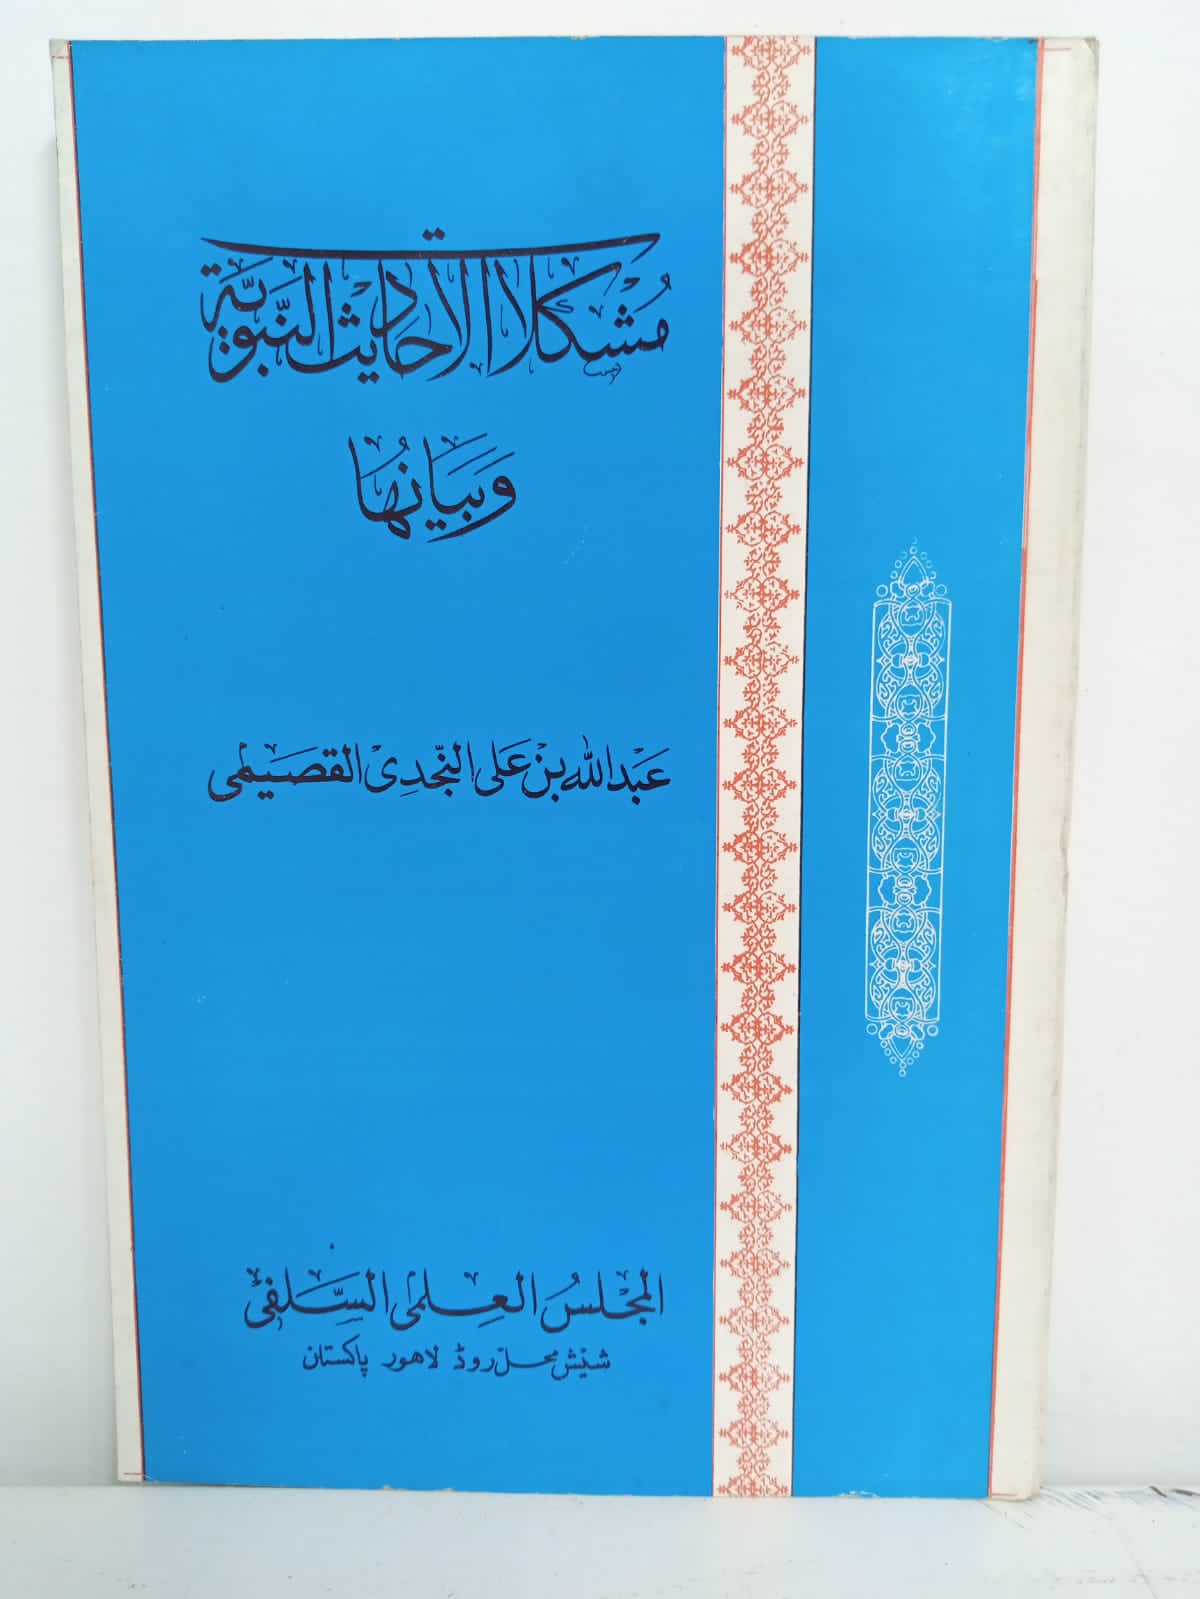 مشكلات الأحاديث النبوية
وَبَيَانُهَا
عَبْدالله بنْ عَلى النّجْدِىْ القصَيمى
المجْلسُ العِلمى السَّلفىْ
شیش محل روڈ لاهور پاکستان